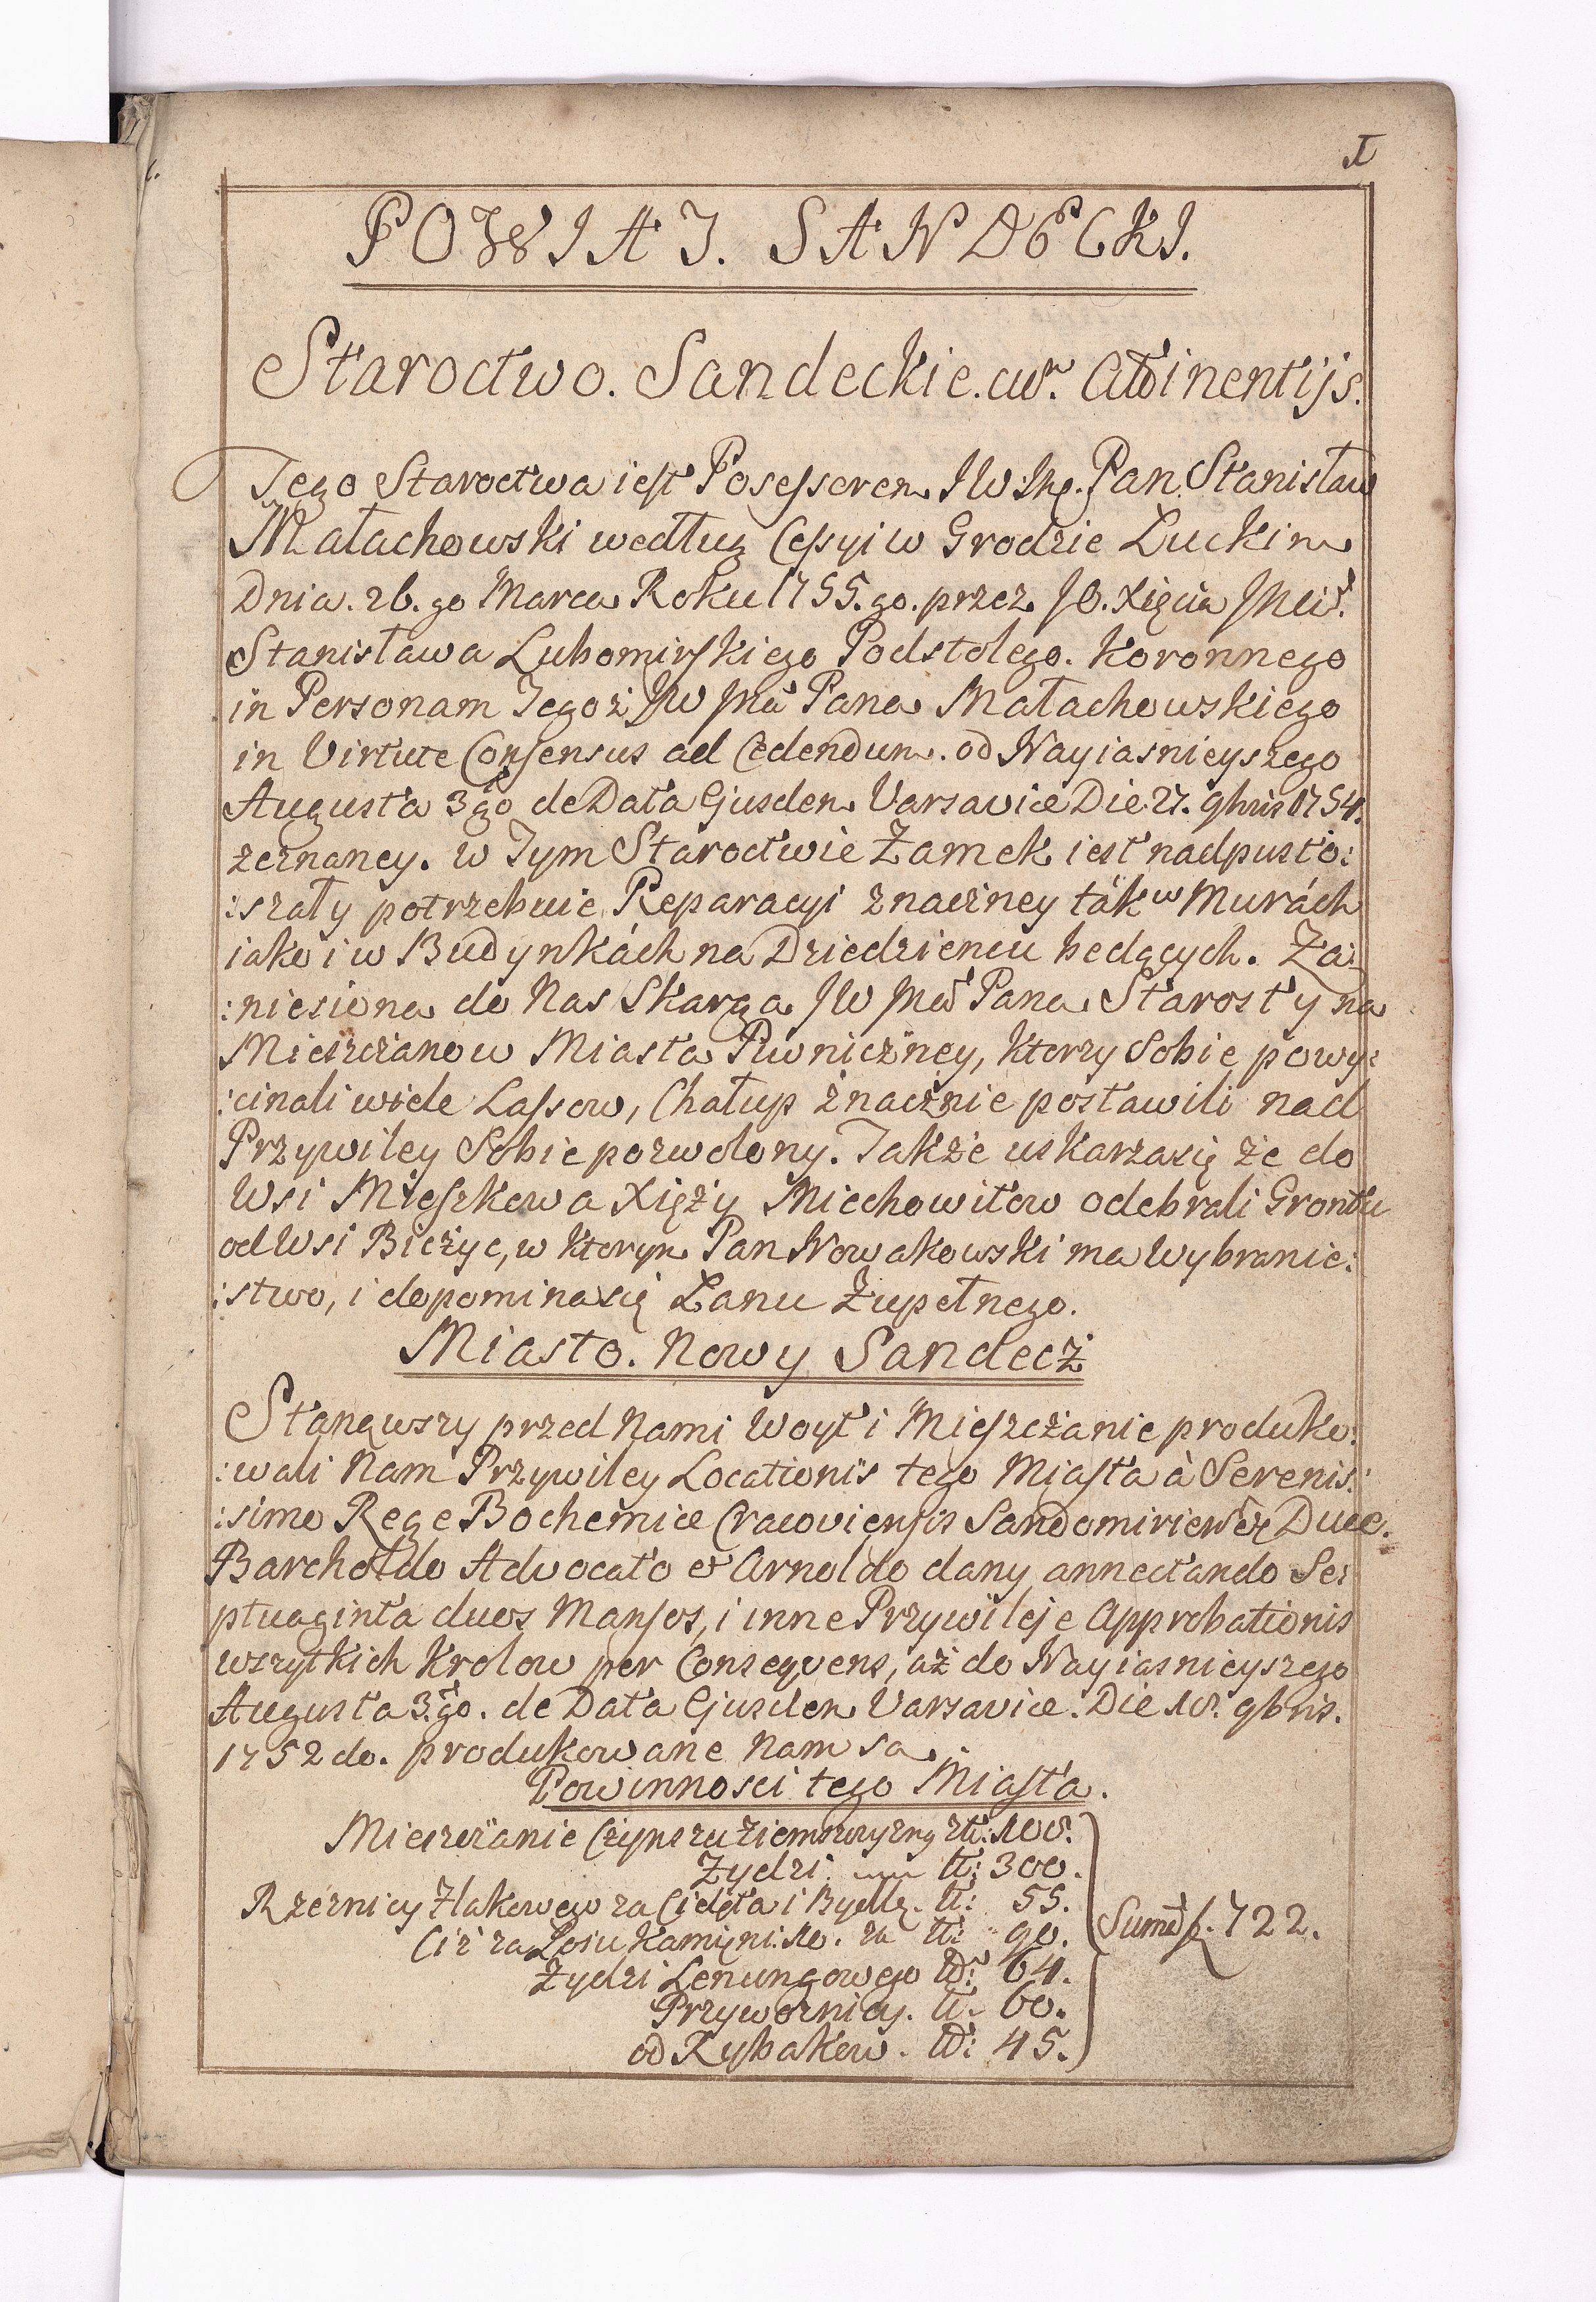 1
POWIAT. SANDECKI.
Staroctwo. Sandeckie. cum. Attinentijs.
Tego Staroctwa iest Posessorem JW Jmć. Pan Stanisław
Małachowski według Cessyi w Grodzie Luckim
Dnia. 26. go Marca Roku 1755. go. przez JO. Xięcia Jmci.
Stanisława Lubomirskiego Podstolego. Koronnego
in Personam Tegoż JW Jmci Pana Małachowskiego
in Virtute Consensus ad Cedendum. od Nayiasnieyszego
Augusta 3go de Data Ejusdem Varsaviæ Die 27. 9bris 1754.
zeznaney. w Tym Staroctwie Zamek iest nadpusto:
:szały potrzebuie Reparacyi znaczney ták w Murách
iako i w Budynkách na Dziedzieńcu bedących. Za:
:niesiona do Nas Skarga JW Jmci Pana Starosty na
Mieszczanow Miasta Piwniczney, ktorzy Sobie powy:
:cinali wiele Lassow, Chałup znacznie postawili nad
Przywiley Sobie pozwolony. Także uskarza się że do
Wsi Mieszkowa Xięży Miechowitow odebrali Grontu
od Wsi Bieżyc, w ktorym Pan Nowakowski ma Wybranie:
:stwo, i dopomina się Łanu Zupełnego.
Miasto. Nowy Sandecz
Stanąwszy przed Nami Woyt i Mieszczanie produko:
:wali Nam Przywiley Locationis tego Miasta à Serenis:
:simo Rege Bochemiæ Cracoviensis Sandomirien et Duce.
Bartholdo Advocato et Arnoldo dany annectando Se:
ptuaginta duos Mansos, i inne Przywileje Approbationis
wszytkich Krolow per Consequens, aż do Nayiasnieyszego
Augusta 3.go. de Data Ejusdem Varsaviæ. Die 10. 9bris.
1752do. produkowane Nam są.
Powinnosci tego Miasta.
Mieszczanie Czynszu Ziemszczyzny zł: 100.
Żydzi zł: 300.
Rzeznicy Z Jakowego za Cielęta i Bydło. zł: 55.
Ciż za Łoiu Kamięni. 10. za zł: 90.
Żydzi Lenungowego zł: 64.
Przywoznicy. zł. 60.
od Rybakow. zł: 45.
Summa f. 722.